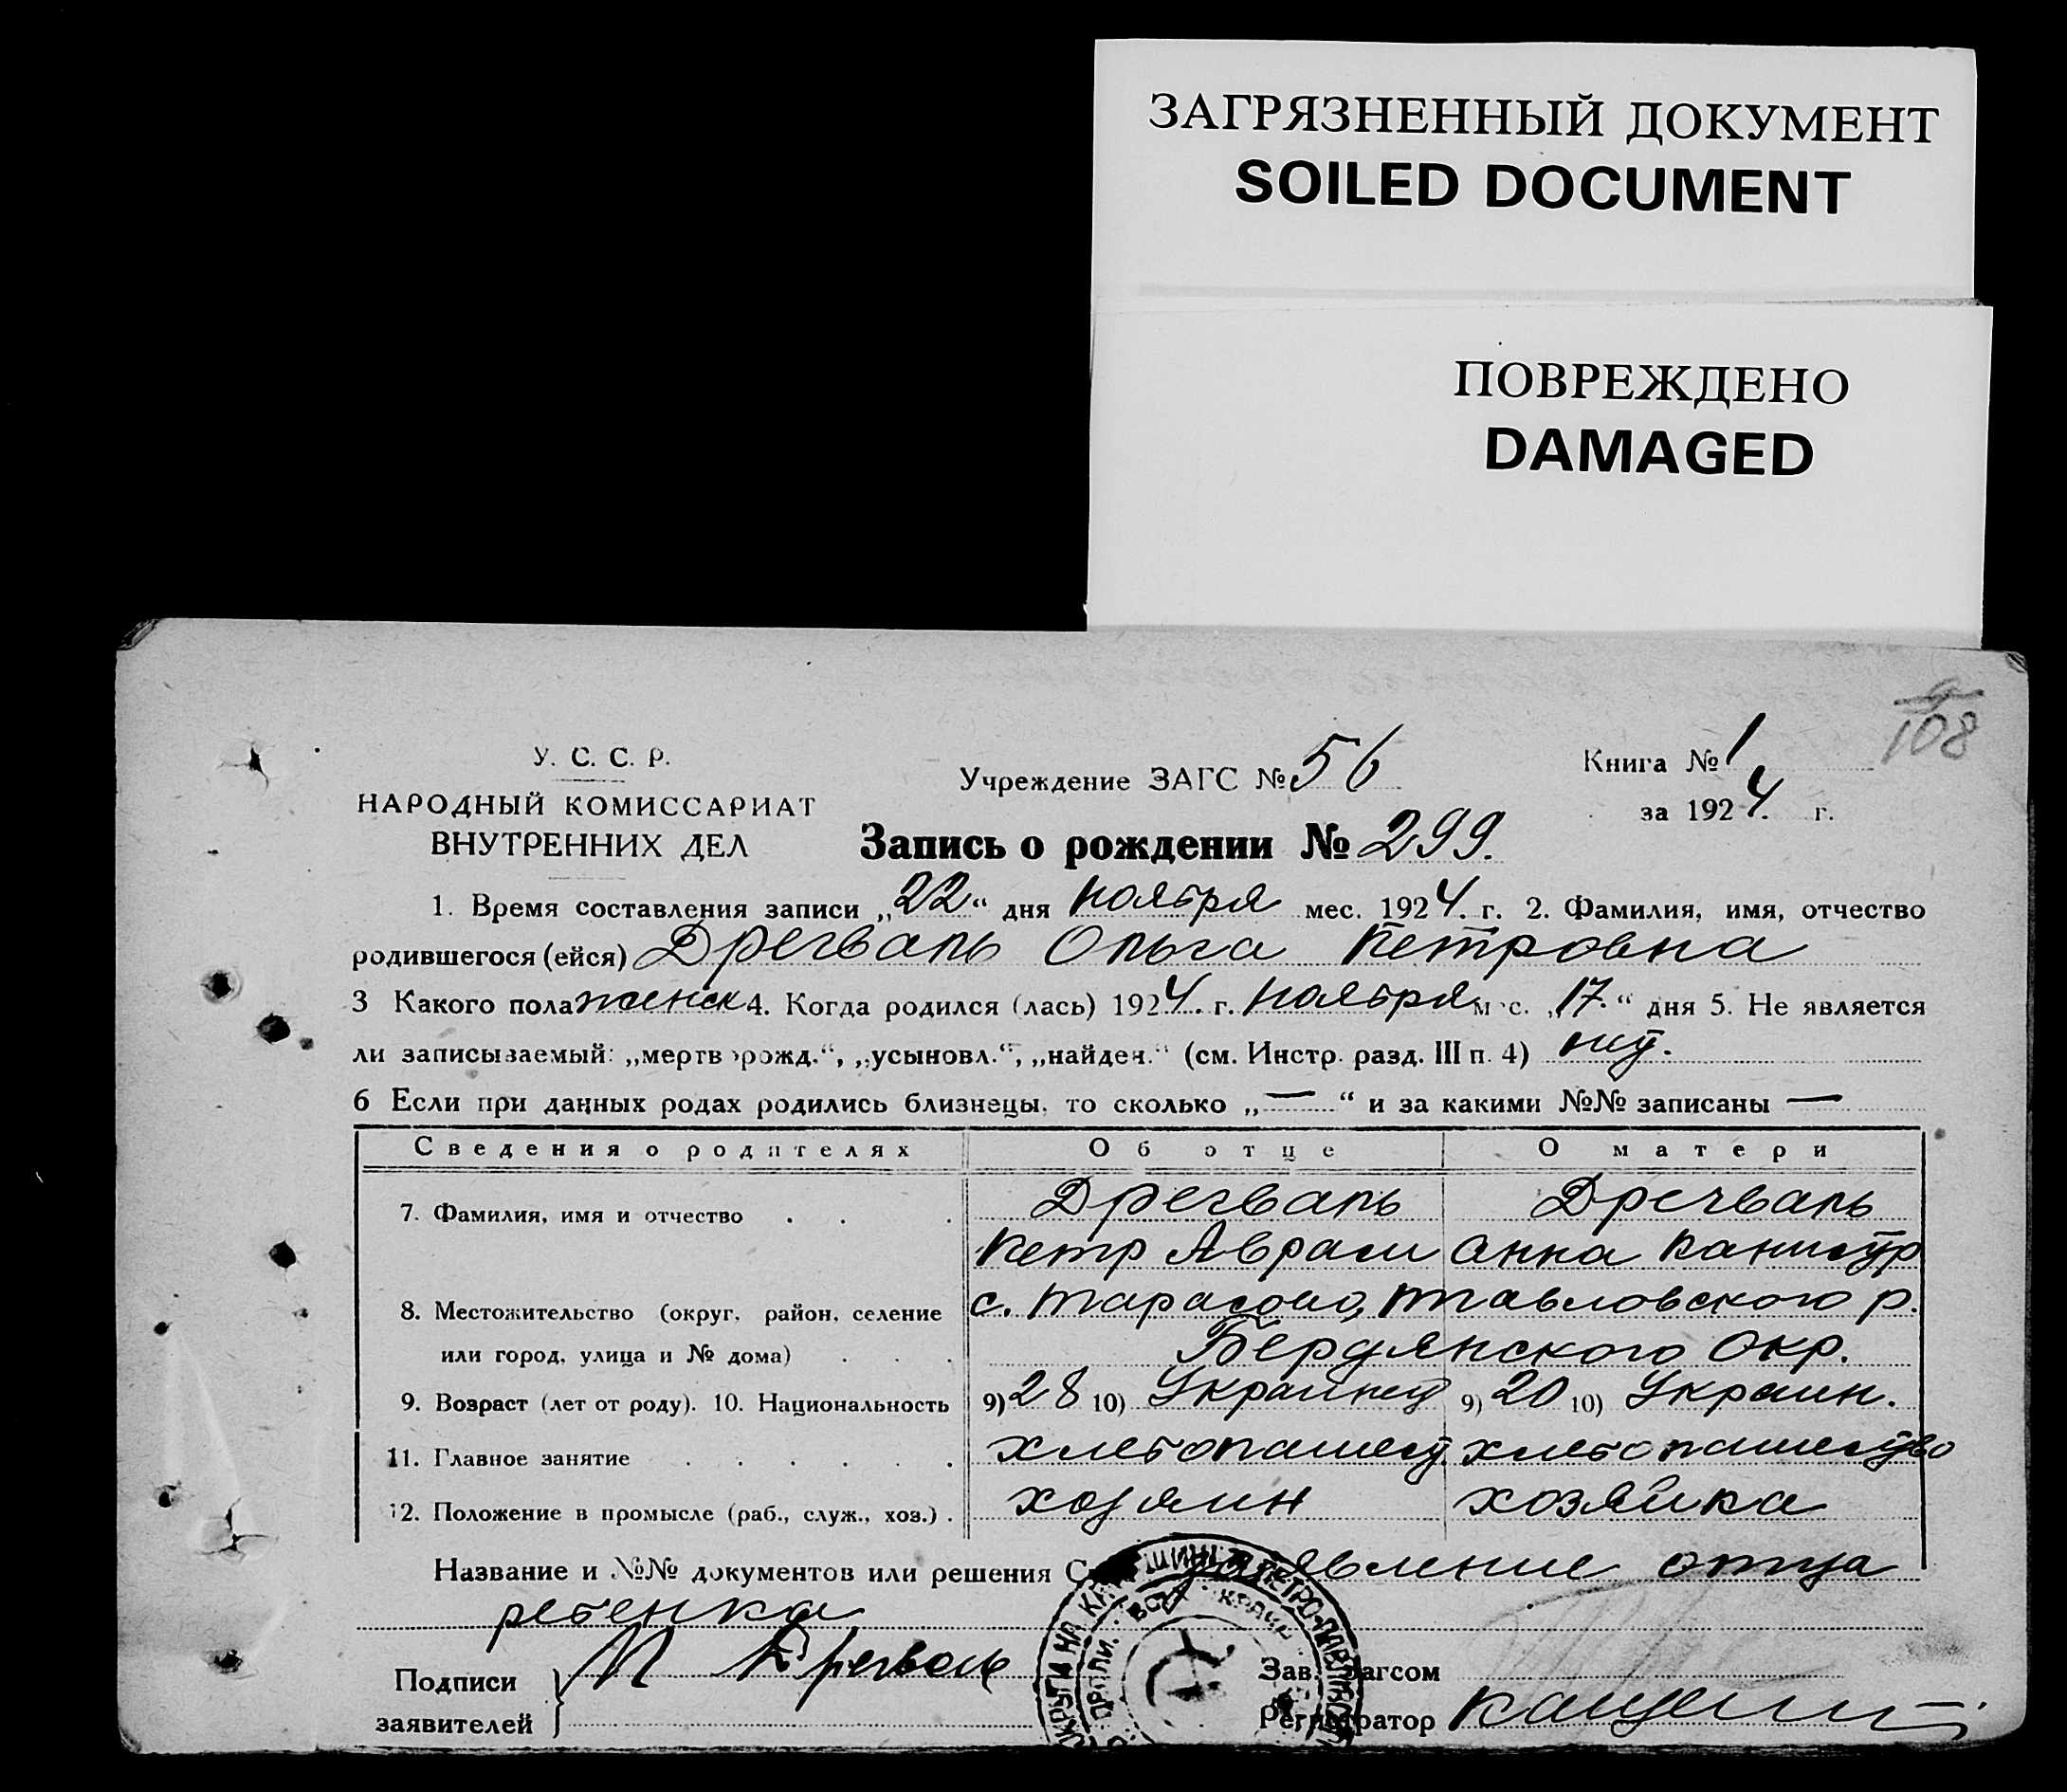 ЗАГРЯЗНЕННЫЙ ДОКУМЕНТ
SOILED DOCUMENT
ПОВРЕЖДЕНО
DAMAGED
108
У. С. С. Р.
НАРОДНЫЙ КОМИССАРИАТ
ВНУТРЕННИХ ДЕЛ
Учреждение ЗАГС № 56
Книга № 1
за 1924. г.
Запись о рождении № 299.
1. Время составления записи „22“ дня ноября мес. 1924. г. 2. Фамилия, имя, отчество
родившегося (ейся) Дрегваль Ольга Петровна
3 Какого пола женск 4. Когда родился (лась) 1924. г. ноября м с. „17.“ дня 5. Не является
ли записываемый: „мертворожд.“, „усыновл.“, „найден.“ (см. Инстр. разд. III п. 4) нет.
6 Если при данных родах родились близнецы, то сколько „—“ и за какими №№ записаны —
Сведения о родителях Об отце О матери
7. Фамилия, имя и отчество . . . Дрегваль Дрегваль
Петр Аврам Анна
8. Местожительство (округ, район, селение с. р.
или город, улица и № дома) . . . Бердянского Окр.
9. Возраст (лет от роду). 10. Национальность 9) 28 10) Украинец 9) 20 10) Украин.
11. Главное занятие . . . . . . хлебопашест. хлебопашество
12. Положение в промысле (раб., служ., хоз.) . хозяин хозяйка
Название и №№ документов или решения заявление отца
ребенка
Подписи
заявителей
П Дрегваль
Зав. Загсом
Регистратор